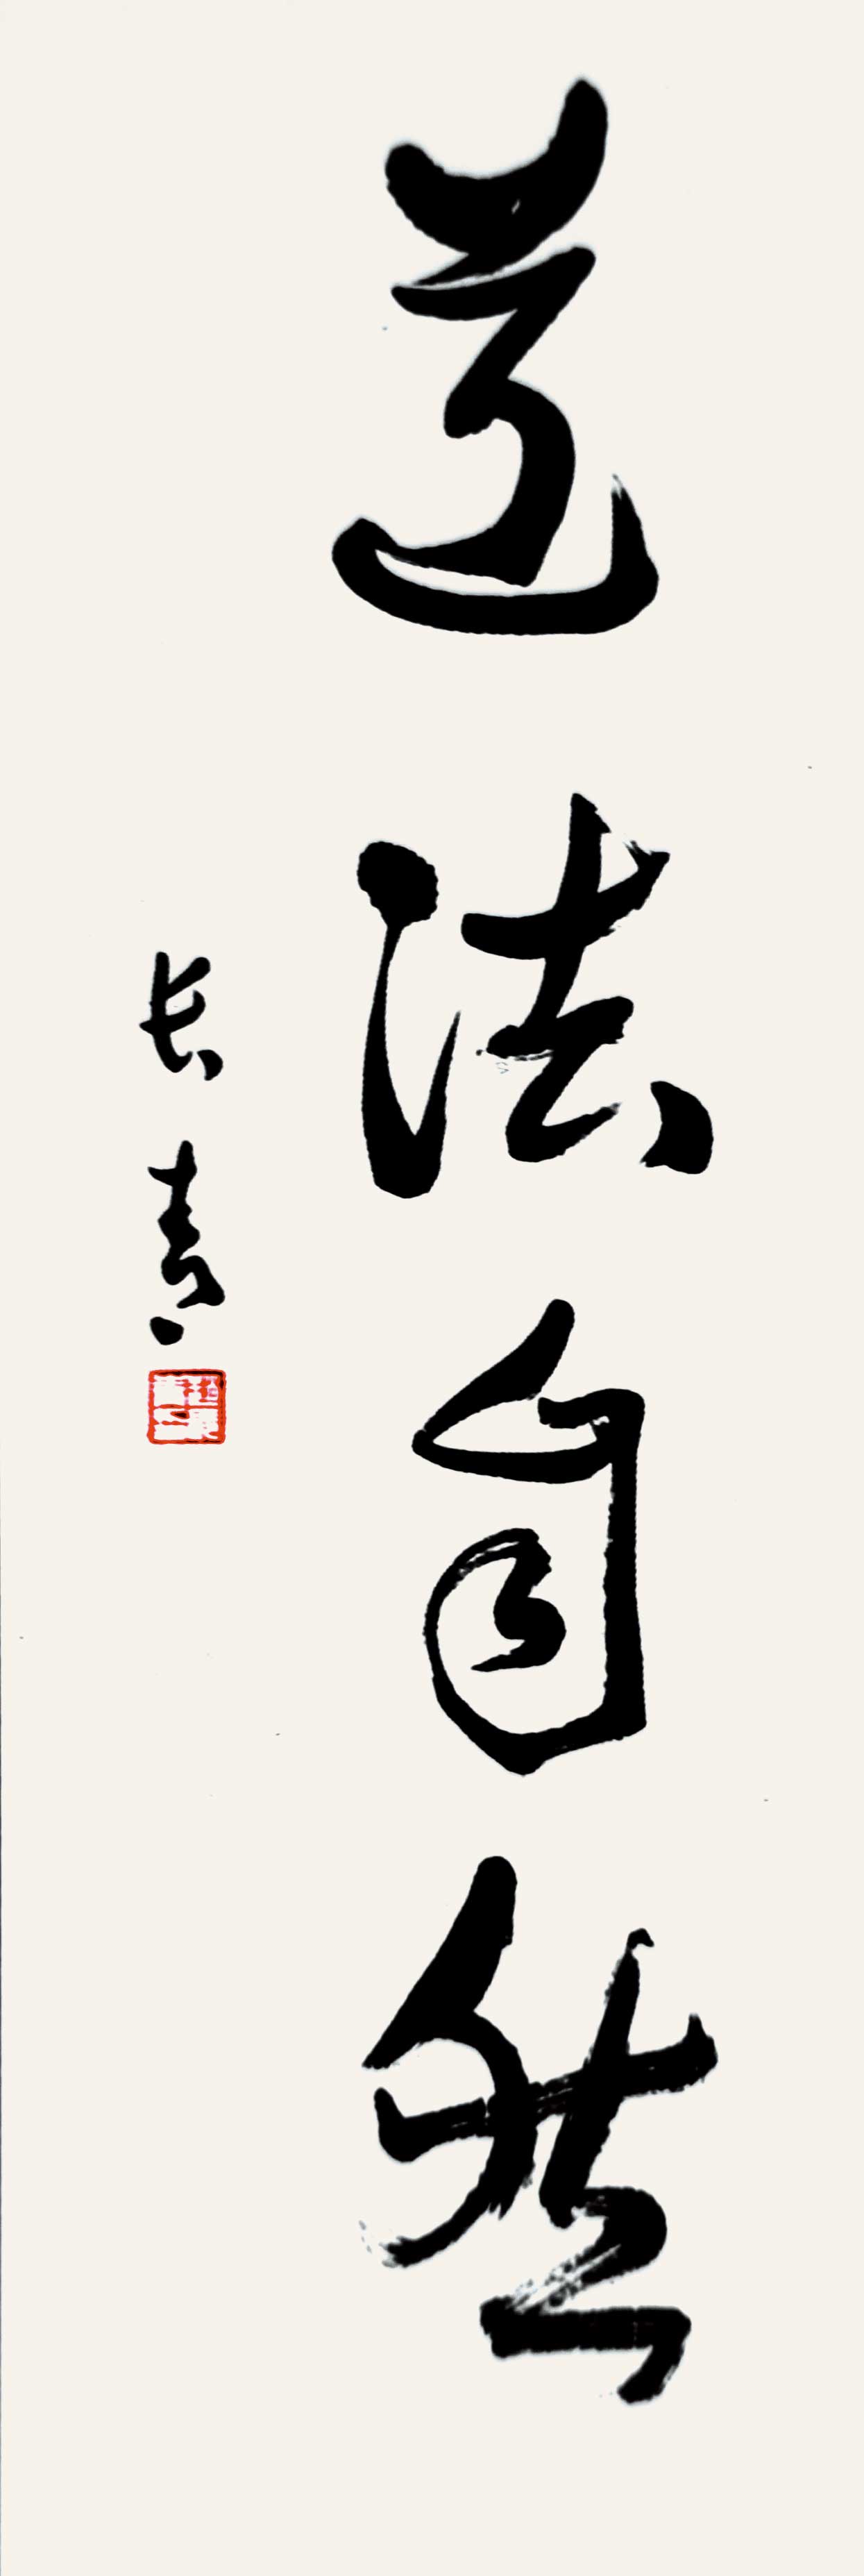 道法自然
长青